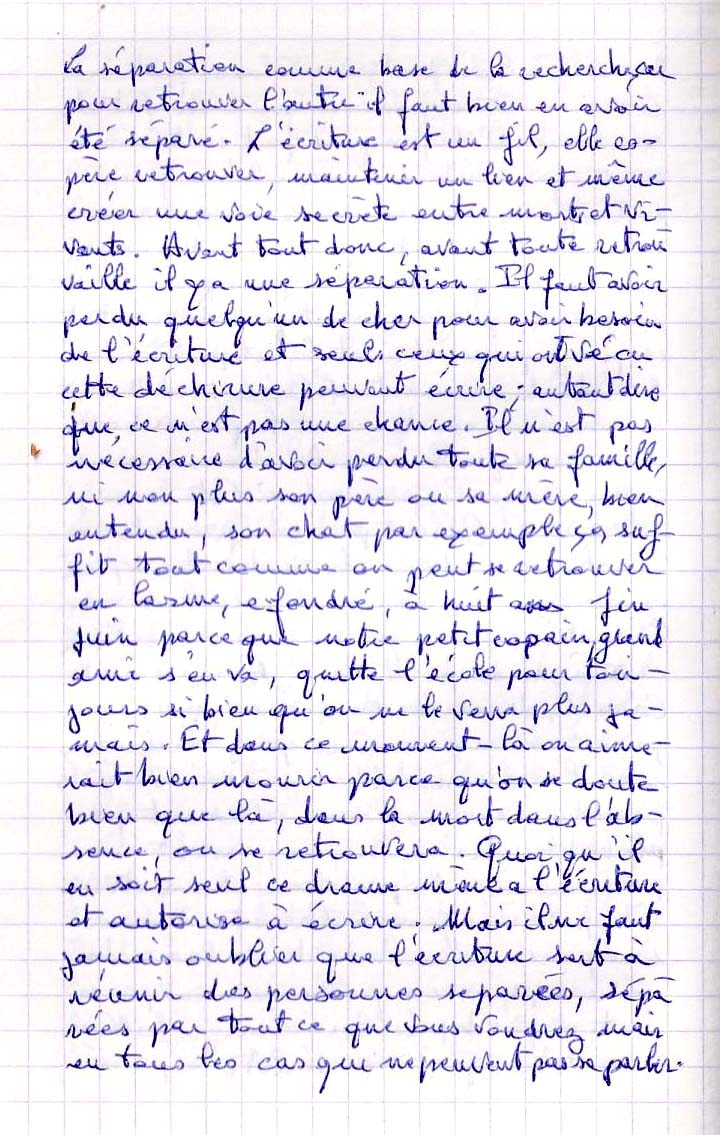 La séparation comme base de la recherche, car
pour retrouver l'autre il faut bien en avoir
été séparé. L'écriture est un fil, elle es-
père retrouver, maintenir un lien et même
créer une voie secrète entre morts et vi-
vants. Avant tout donc, avant toute retrou
vaille il y a une séparation. Il faut avoir
perdu quelqu'un de cher pour avoir besoin
de l'écriture et seuls ceux qui ont vécu
cette déchirure peuvent écrire ; autant dire
que, ce n'est pas une chance. Il n'est pas
nécessaire d'avoir perdu toute sa famille,
ni non plus son père ou sa mère, bien
entendu, son chat par exemple ça suf-
fit tout comme on peut se retrouver
en larme, efondré, à huit ans fin
juin parce que notre petit copain, grand
ami s'en va, quitte l'école pour tou-
jours si bien qu'on ne le verra plus ja-
mais. Et dans ce moment-là on aime-
rait bien mourir parce qu'on se doute
bien que là, dans la mort dans l'ab-
sence, on se retrouvera. Quoi qu'il
en soit seul ce drame mène a l'écriture
et autorise à écrire. Mais il ne faut
jamais oublier que l'écriture sert à
réunir des personnes separées, sépa
rées par tout ce que vous voudrez mais
en tous les cas qui ne peuvent pas se parler.